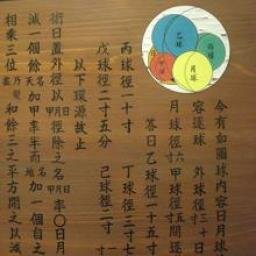 乙球
丙球
月球
今有如圖球内容日月球
容逐球 外球徑三十 日
月球徑六 甲球徑五 問逐
答曰乙球徑一十五寸
丙球徑一十寸 丁球徑三寸七
戊球徑二寸五分 己球徑二寸
以下環源故止
術曰置外徑以月徑除之名率〇日月
減一個餘名天加甲率半而名地加一個自之
相乘三位和餘三之平方開之以減